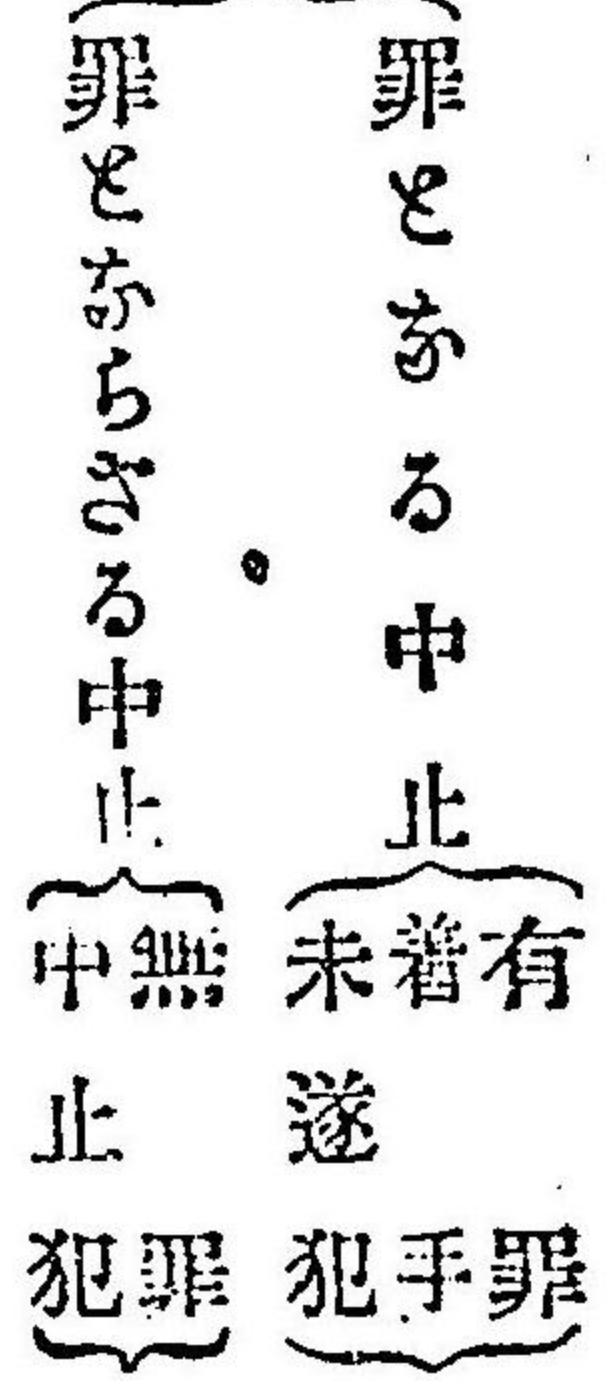 罪となる中止
有罪
着手
未遂犯
罪とならざる中止
無罪
中止犯